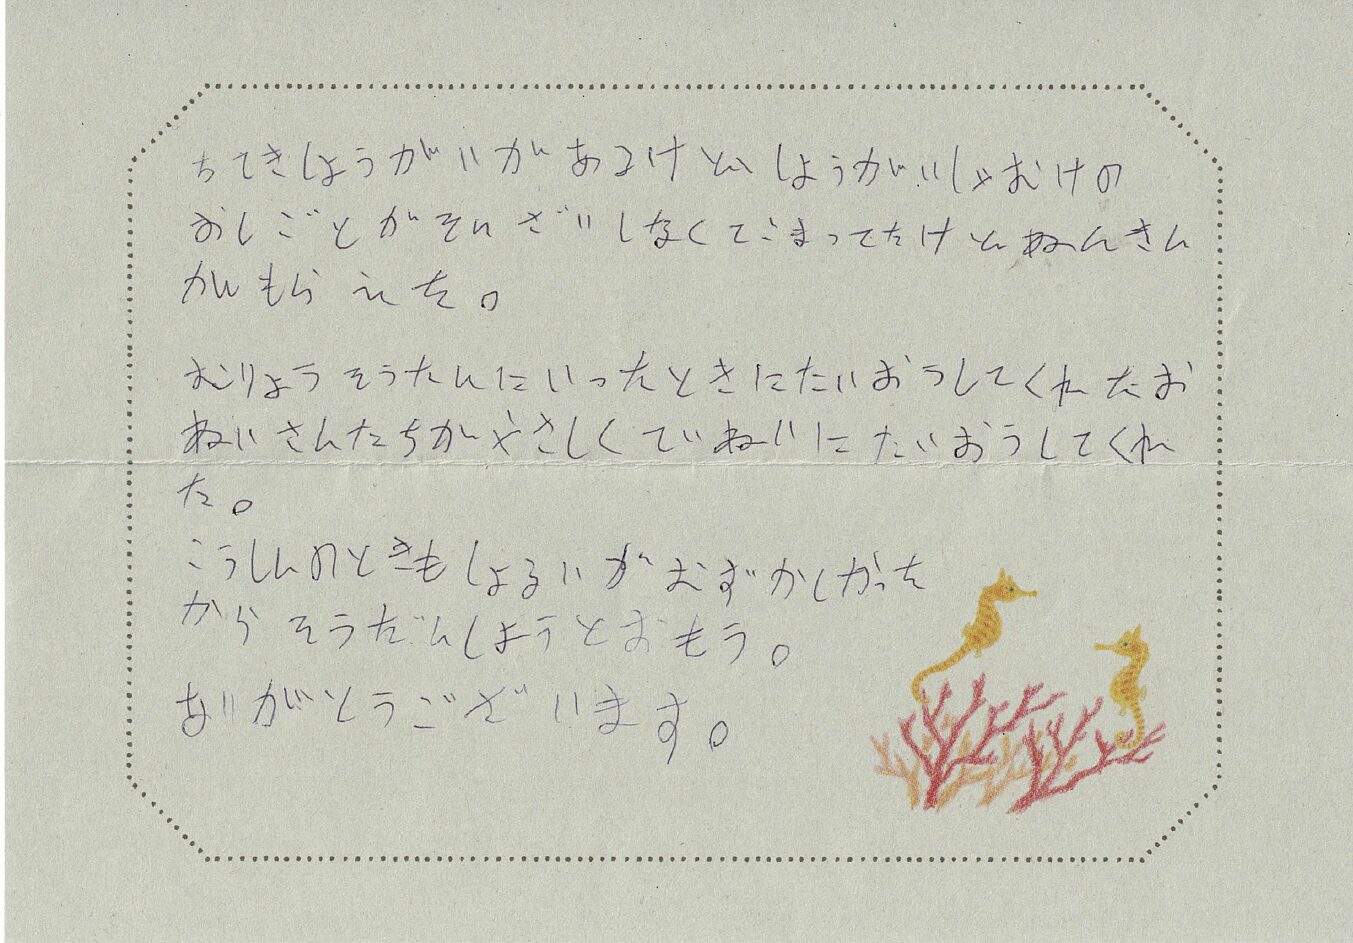 ちてきしょうがいがあるけど、しょうがいしゃむけの
おしごとがそんざいしなくてこまってたけどねんきん
がもらえた。
むりょうそうだんにいったときにたいおうしてくれたお
ねいさんたちがやさしくていねいにたいおうしてくれ
た。
こうしんのときもしょるいがむずかしかった
からそうだんしようとおもう。
ありがとうございます。